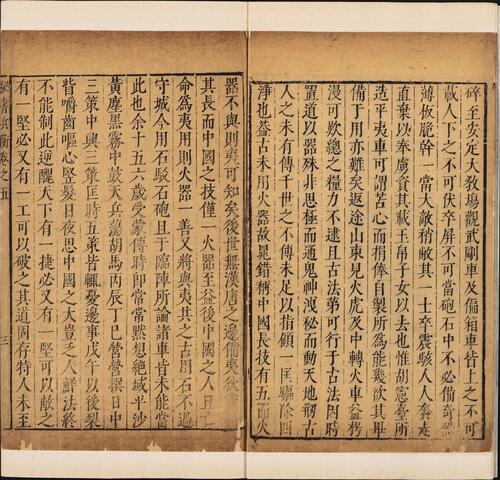 碎至安定大敎塲觀武剛車及偏箱車皆上之不可
載人下之不可伏卒屏不可當砲石中不必備
薄板脆幹一當大敵稍敵其一士卒震駭人人奔走
直棄以奉虜資其載玉帛子女以去也惟胡憲臺所
造平夷車可謂苦心而捐俸自製所爲能幾欲其畢
備于用亦難矣返途山東見火虎及中轉火車益
漫可歎總之糧力不逮且古法第可行于古法因時
置道以器殊非思極而通鬼神洩秘而動天地剏古
人之未有傳千世之不傳未足以指顧一匡驅除四
淨也葢古未用火器故晁錯稱中國長技有五而火
器不與則夷可知矣後世無漢唐之邊備東
其長而中國之技僅一火器至益後中國之人且
命爲夷用則火器一善又將與夷共之古用石不過
守城今用石駁石砲且于臨陣所諭諸車皆未能當
此也余十五六歲受蒙傳時卽常常黙想絶域平沙
黄塵黑霧中鼓天兵蕩胡馬丙辰丁巳營營撰日中
三策中興三策匡時五策皆輒憂邊事戊午以後裂
眥嚼齒嘔心竪髮日夜思中國之大豈之人鮮法終
不能制此逆醜天下有一捷必又有一堅可以敵之
有一堅必又有一工可以破之其道固存特人未至
兵衡卷之五
三